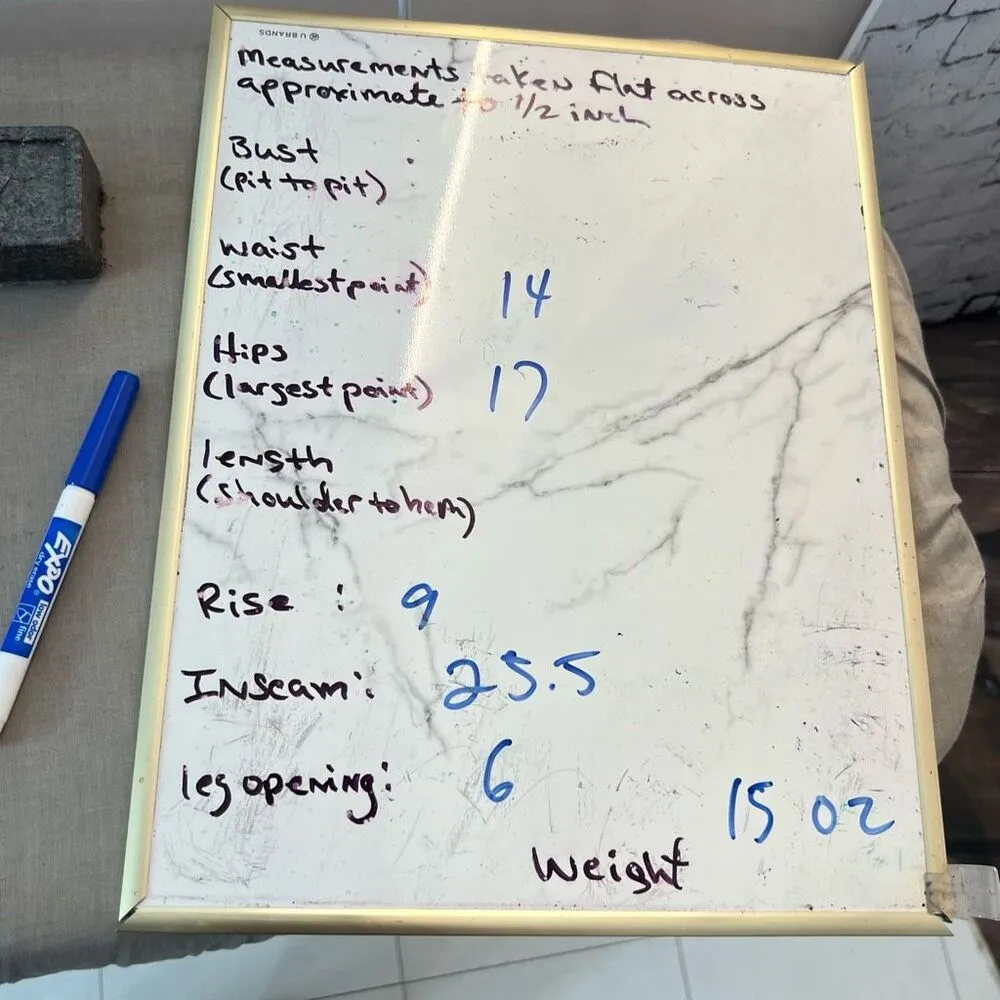 U BRANDS
Measurements taken flat across
approximate to 1/2 inch
Bust
(pit to pit)
waist
(smallest point) 14
Hips
(largest point) 17
length
(shoulder to hem)
Rise : 9
Inseam: 25.5
leg opening: 6
15 oz
Weight
EXPO
dry erase
low odor
fine